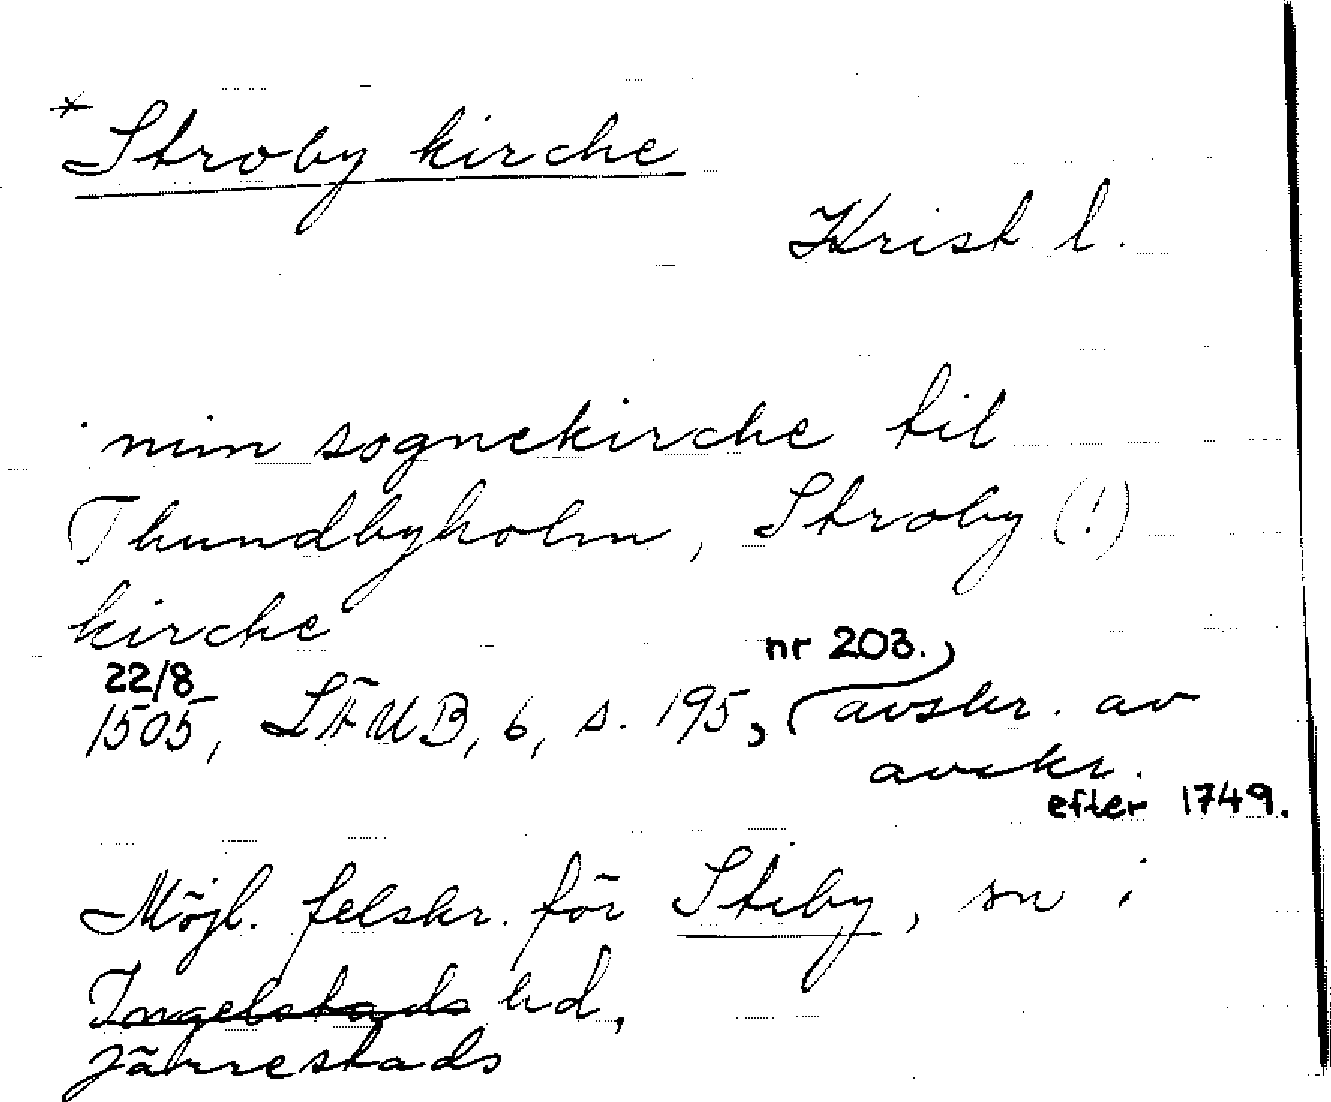 *Stroby kirche
Krist l.
min sognekirche til
Thundbyholm, Stroby (!)
kirche
22/8 nr 203.
1505, LÄUB, 6, s. 195, (avskr. av
avskr.
efter 1749.
Möjl. felskr. för Stiby, sn i
Ingelstads hd,
Järrestads